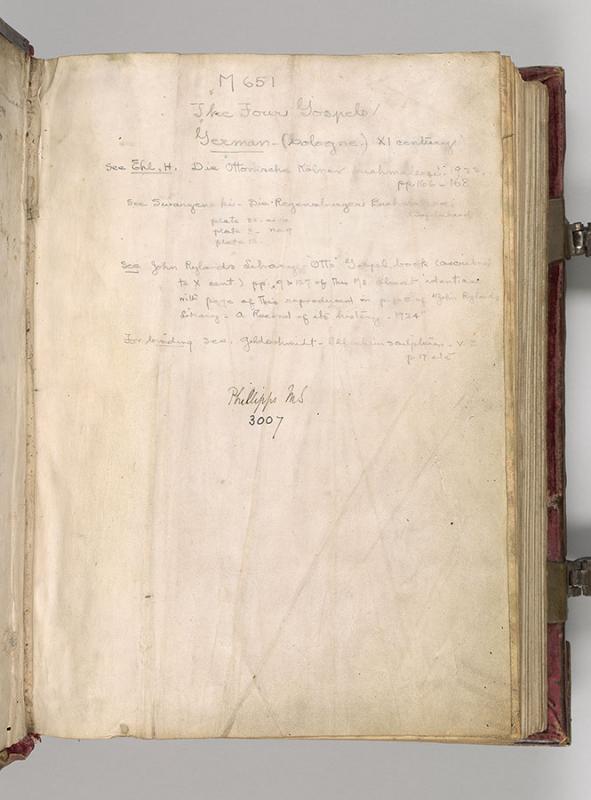 M 651
The Four Gospels
German - (Cologne.) XI century
See Ehl, H. Die Ottonische Kölner Buchmalerei. 1922.
pp. 166 - 168
See Swarzenski - Die Regensburger Buchmalerei
plate
plate
plate
See John Rylands Library, "Otto" Gospel book (ascribed
to X cent.) pp. of this MS. almost identical
with page of this reproduced in of "John Rylands
Library - a Record of its history - 1924"
For binding see. Goldschmidt - Elfenbeinskulpturen - V.
p. 17
Phillipps MS
3007